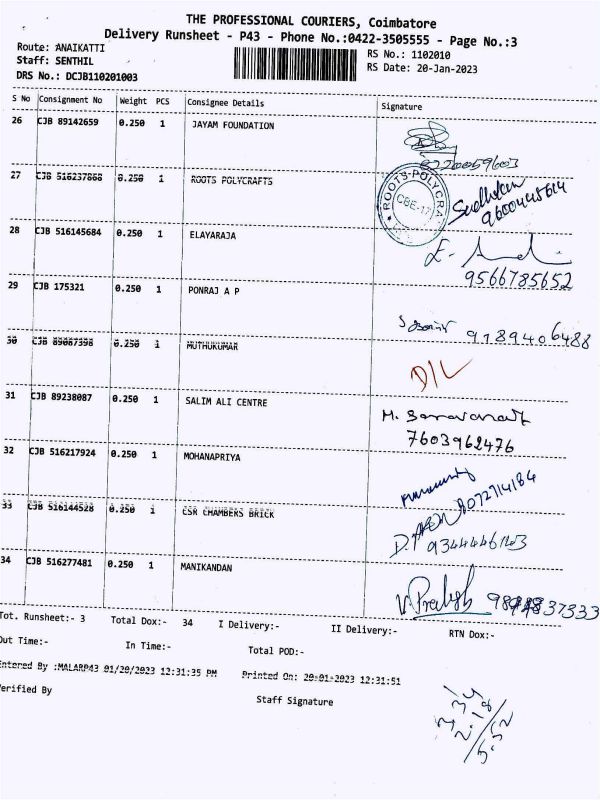 THE PROFESSIONAL COURIERS, Coimbatore
Delivery Runsheet - P43 - Phone No.:0422-3505555 - Page No.:3
Route: ANAIKATTI
RS No.: 1102010
Staff: SENTHIL
RS Date: 20-Jan-2023
DRS No.: DCJB110201003
S No Consignment No Weight PCS Consignee Details Signature
26 CJB 89142659 0.250 1 JAYAM FOUNDATION
27 CJB 516237868 0.250 1 ROOTS POLYCRAFTS
ROOTS-POLYCRA
CBE-17
9600445614
28 CJB 516145684 0.250 1 ELAYARAJA
9566785652
29 CJB 175321 0.250 1 PONRAJ A P
9189406488
30 CJB 89087398 0.250 1 MUTHUKUMAR
D/L
31 CJB 89238087 0.250 1 SALIM ALI CENTRE
M. Saravanan
7603962476
32 CJB 516217924 0.250 1 MOHANAPRIYA
8072714184
33 CJB 516144528 0.250 1 CSR CHAMBERS BRICK
34 CJB 516277481 0.250 1 MANIKANDAN
V. Prabhsh
Tot. Runsheet:- 3 Total Dox:- 34 I Delivery:- II Delivery:- RTN Dox:-
Out Time:- In Time:- Total POD:-
Entered By :MALARP43 01/20/2023 12:31:35 PM Printed On: 20-01-2023 12:31:51
Verified By Staff Signature